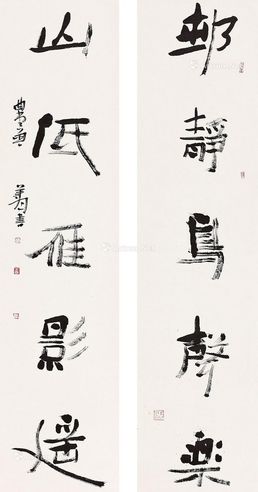 邨靜鳥聲樂
山低雁影遥